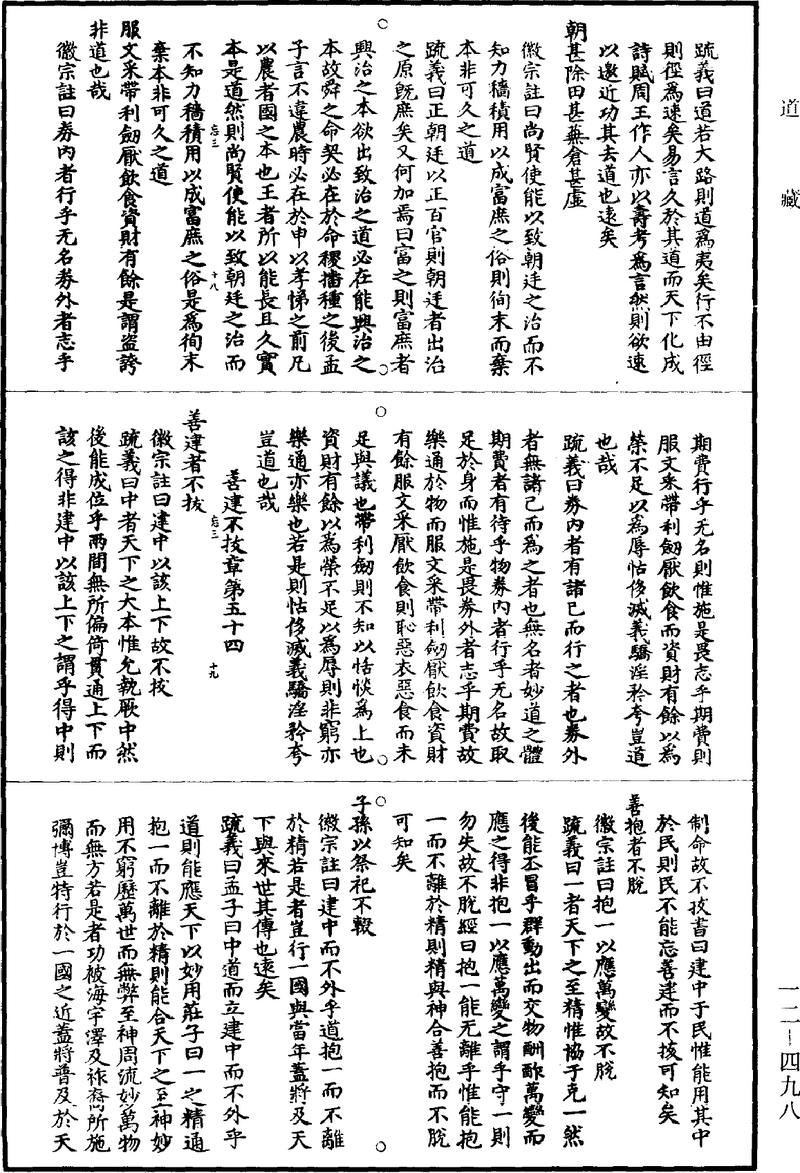 道藏
疏義曰道若大路則道爲夷矣行不由徑
則徑爲速矣易言久於其道而天下化成
詩賦周王作人亦以壽考爲言然則欲速
以邀近功其去道也遠矣
朝甚除田甚蕪倉甚虛
徽宗註曰尚賢使能以致朝廷之治而不
知力穡積用以成富庶之俗則徇末而棄
本非可久之道
疏義曰正朝廷以正百官則朝廷者出治
之原既庶矣又何加焉曰富之則富庶者
興治之本欲出致治之道必在能興治之
本故舜之命契必在於命稷播種之後孟
子言不違農時必在於申以孝悌之前凡
以農者國之本也王者所以能長且久實
本是道然則尚賢使能以致朝廷之治而
不知力穡積用以成富庶之俗是爲徇末
棄本非可久之道
服文采帶利劒厭飲食資財有餘是謂盜誇
非道也哉
徽宗註曰券內者行乎无名券外者志乎
期費行乎无名則惟施是畏志乎期費則
服文采帶利劒厭飲食而資財有餘以爲
榮不足以爲辱怙侈滅義驕淫矜夸豈道
也哉
疏義曰券內者有諸己而行之者也券外
者無諸己而爲之者也無名者妙道之體
期費者有待乎物券內者行乎无名故取
足於身而惟施是畏券外者志乎期費故
樂通於物而服文采帶利劒厭飲食資財
有餘服文采厭飲食則恥惡衣惡食而未
足與議也帶利劒則不知以恬惔爲上也
資財有餘以爲榮不足以爲辱則非窮亦
樂通亦樂也若是則怙侈滅義驕淫矜夸
豈道也哉
善建不拔章第五十四
善建者不拔
徽宗註曰建中以該上下故不拔
疏義曰中者天下之大本惟允執厥中然
後能成位乎兩間無所偏倚貫通上下而
該之得非建中以該上下之謂乎得中則
制命故不拔書曰建中于民惟能用其中
於民則民不能忘善建而不拔可知矣
善抱者不脫
徽宗註曰抱一以應萬變故不脫
疏義曰一者天下之至精惟協于克一然
後能丕冒乎群動出而交物酬酢萬變而
應之得非抱一以應萬變之謂乎守一則
勿失故不脫經曰抱一能无離乎惟能抱
一而不離於精則精與神合善抱而不脫
可知矣
子孫以祭祀不輟
徽宗註曰建中而不外乎道抱一而不離
於精若是者豈行一國與當年蓋將及天
下與來世其傳也遠矣
疏義曰孟子曰中道而立建中而不外乎
道則能應天下以妙用莊子曰一之精通
抱一而不離於精則能合天下之至神妙
用不窮歷萬世而無弊至神周流妙萬物
而無方若是者功被海宇澤及祚裔所施
彌博豈特行於一國之近蓋將普及於天
忘三
十八
忘三
十九
一二—四九八